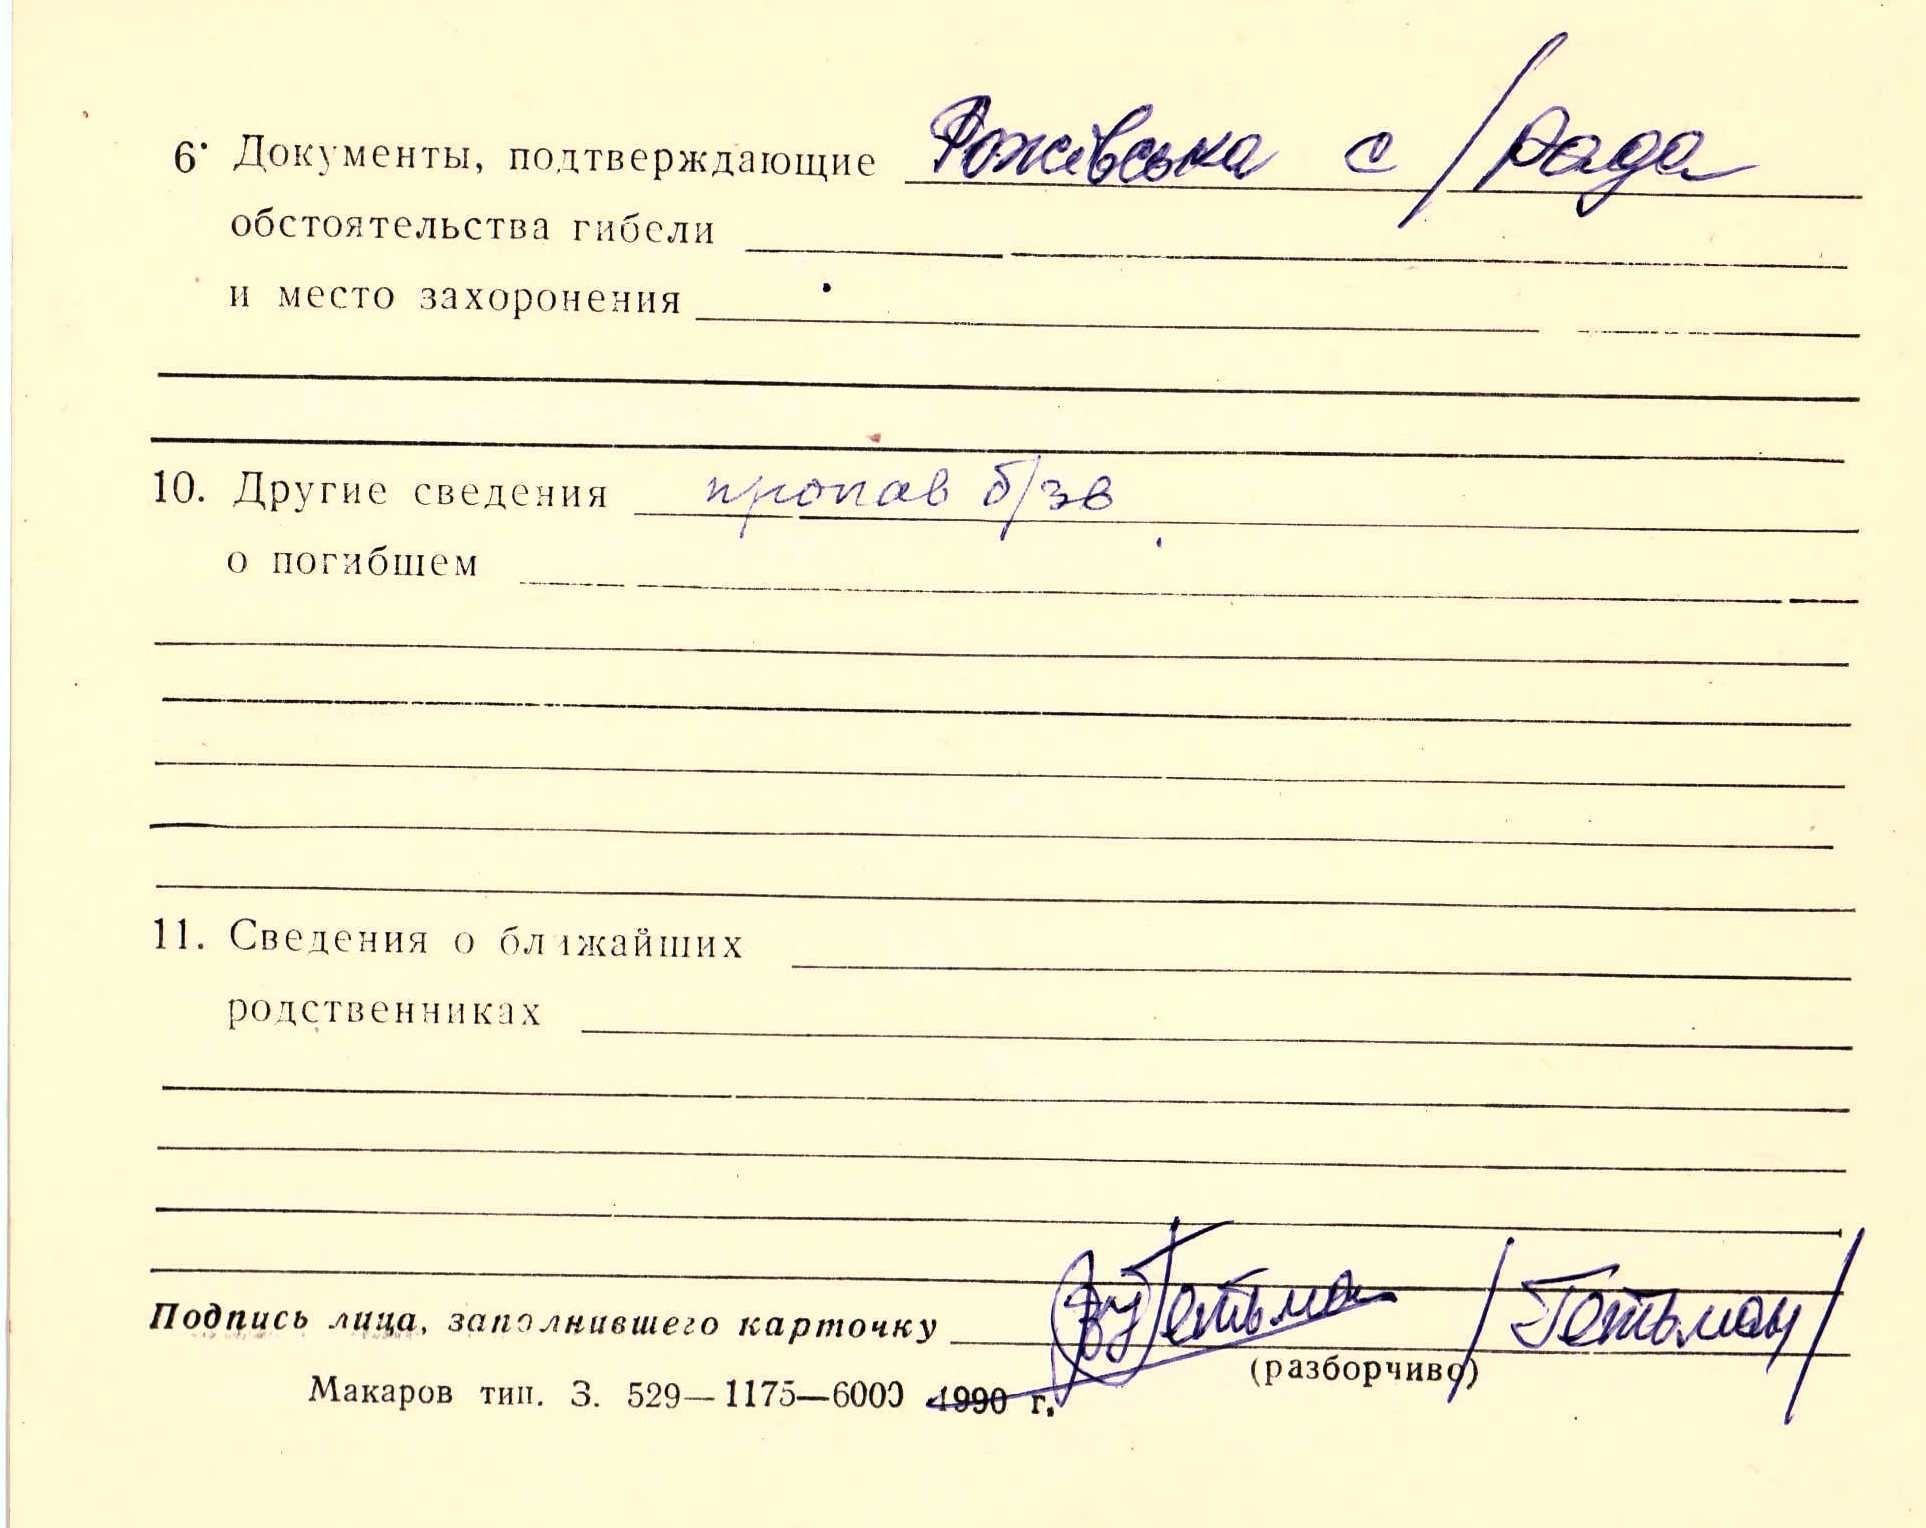 6. Документы, подтверждающие Рожівська с/рада
обстоятельства гибели
и место захоронения
10. Другие сведения пропав б/зв
о погибшем
11. Сведения о ближайших
родственниках
Подпись лица, заполнившего карточку /Гетьман/
(разборчиво)
Макаров тип. З. 529—1175—6000 1990 г.